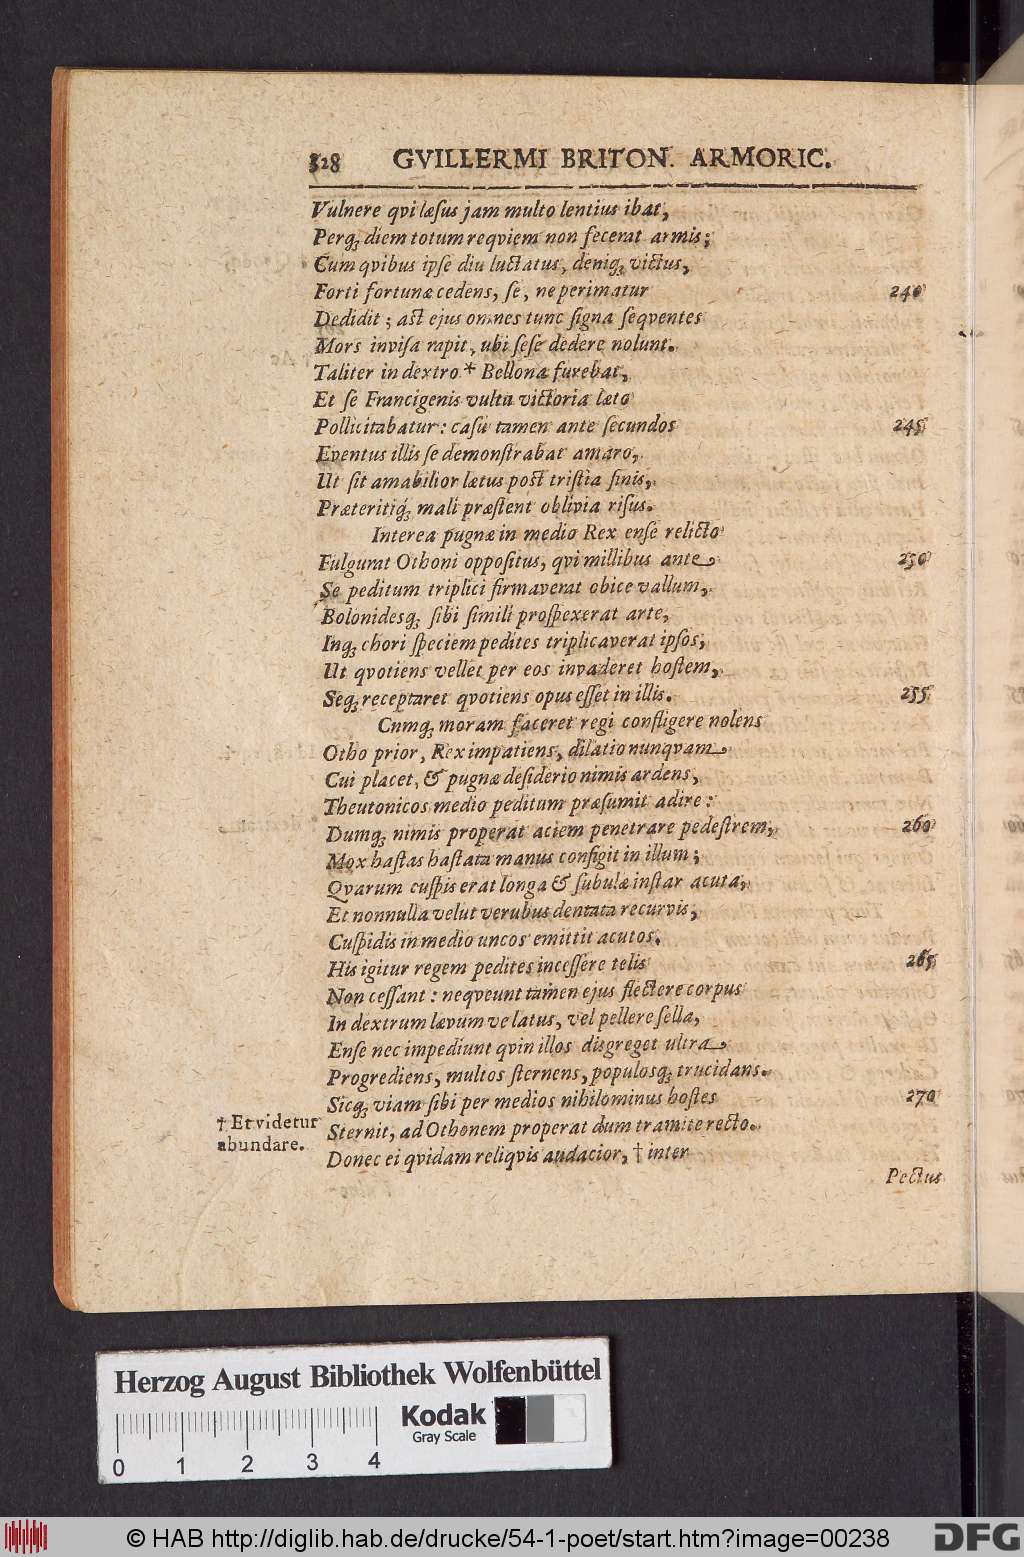 328 GVILLERMI BRITON. ARMORIC.
Vulnere qvi læsus jam multo lentius ibat,
Perqꝫ diem totum reqviem non fecerat armis;
Cum qvibus ipse diu luctatus, deniqꝫ victus,
Forti fortunæ cedens, se, ne perimatur 240
Dedidit; ast ejus omnes tunc signa seqventes
Mors invisa rapit, ubi sese dedere nolunt.
Taliter in dextro * Bellona furebat,
Et se Francigenis vultu victoria læto
Pollicitabatur: casu tamen ante secundos 245
Eventus illis se demonstrabat amaro,
Ut sit amabilior lætus post tristia finis,
Præteritiqꝫ mali præstent oblivia risus.
Interea pugnæ in medio Rex ense relicto
Fulgurat Othoni oppositus, qvi millibus ante 250
Se peditum triplici firmaverat obice vallum,
Bolonidesqꝫ sibi simili prospexerat arte,
Inqꝫ chori speciem pedites triplicaverat ipsos,
Ut qvotiens vellet per eos invaderet hostem,
Seqꝫ receptaret qvotiens opus esset in illis. 255
Cnmqꝫ moram faceret regi confligere nolens
Otho prior, Rex impatiens, dilatio nunqvam
Cui placet, & pugnæ desiderio nimis ardens,
Theutonicos medio peditum præsumit adire:
Dumqꝫ nimis properat aciem penetrare pedestrem, 260
Mox hastas hastata manus configit in illum;
Qvarum cuspis erat longa & subulæ instar acuta,
Et nonnulla velut verubus dentata recurvis,
Cuspidis in medio uncos emittit acutos.
His igitur regem pedites incessere telis 265
Non cessant: neqveunt tamen ejus flectere corpus
In dextrum lævum ve latus, vel pellere sella,
Ense nec impediunt qvin illos disgreget ultra
Progrediens, multos sternens, populosqꝫ trucidans.
Sicqꝫ viam sibi per medios nihilominus hostes 270
Sternit, ad Othonem properat dum tramite recto.
Donec ei qvidam reliqvis audacior, † inter
† Et videtur
abundare.
Pectus
Herzog August Bibliothek Wolfenbüttel
Kodak
Gray Scale
0 1 2 3 4
© HAB http://diglib.hab.de/drucke/54-1-poet/start.htm?image=00238
DFG